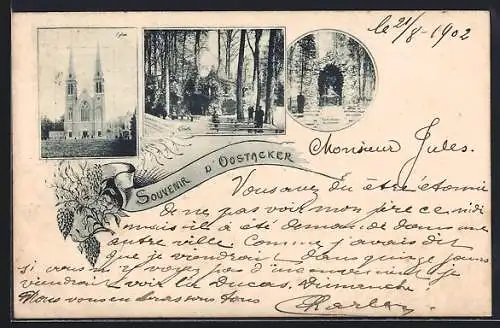 le 21/8 - 1902
Eglise
SOUVENIR D'OOSTACKER
Monsieur Jules.
Vous avez du être étonné
de ne pas voir mon père ce midi
mais il a été demandé dans une
autre ville. Comme j'avais dit
que je viendrai dans quinze jours
si vous n'y voyez pas d'inconvenient je
viendrai voir la ducas. Dimanche
Nous vous embrassons tous
Charles